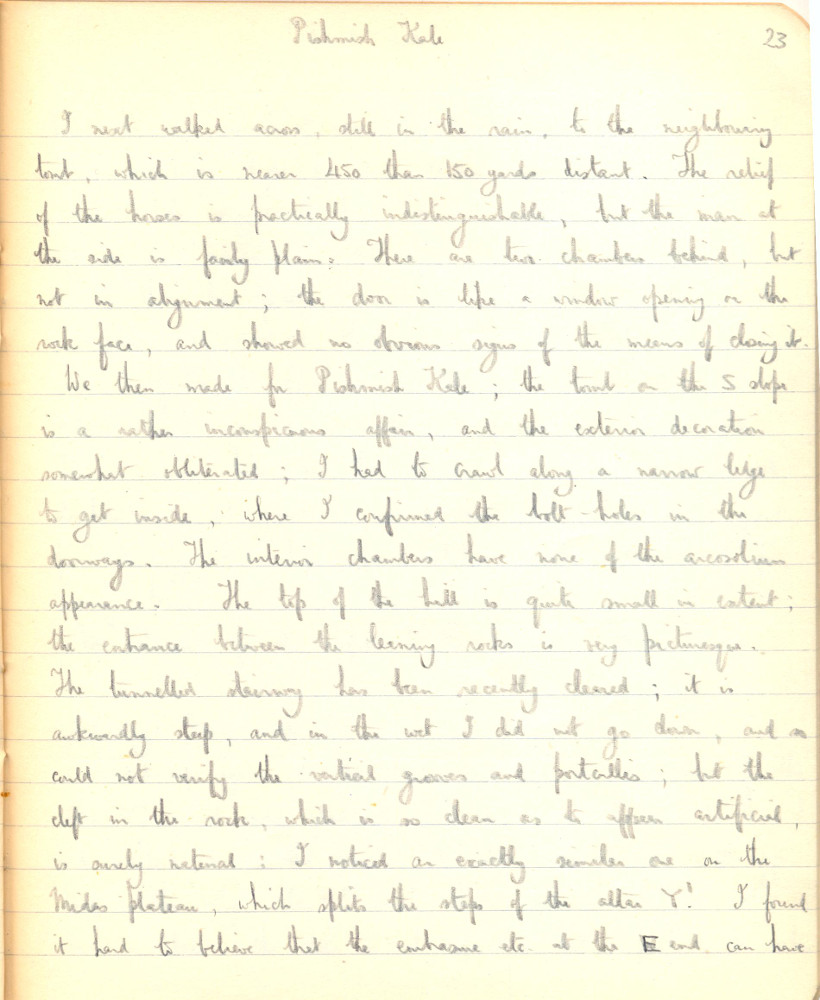 Pishmish Kale
23
I next walked across, still in the rain, to the neighbouring
tomb, which is nearer 450 than 150 yards distant. The relief
of the horses is practically indistinguishable, but the man at
the side is fairly plain: There are two chambers behind, but
not in alignment; the door is like a window opening on the
rock face, and showed no obvious signs of the means of closing it.
We then made for Pishmish Kale; the tomb on the S slope
is a rather inconspicuous affair, and the exterior decoration
somewhat obliterated; I had to crawl along a narrow ledge
to get inside, where I confirmed the bolt-holes in the
doorways. The interior chambers have none of the arcosolium
appearance. The top of the hill is quite small in extent;
the entrance between the leaning rocks is very picturesque.
The tunnelled stairway has been recently cleared; it is
awkwardly steep, and in the wet I did not go down, and so
could not verify the vertical grooves and portcullis; but the
cleft in the rock, which is so clean as to appear artificial,
is surely natural: I noticed an exactly similar one on the
Midas plateau, which splits the steps of the altar Y! I found
it hard to believe that the embrasure etc. at the E end can have